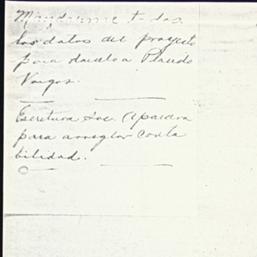 Mandarme todos
los datos del proyecto
para darlo a Plácido
Vargas.
Escritura Soc.
para arreglar Conta
bilidad.